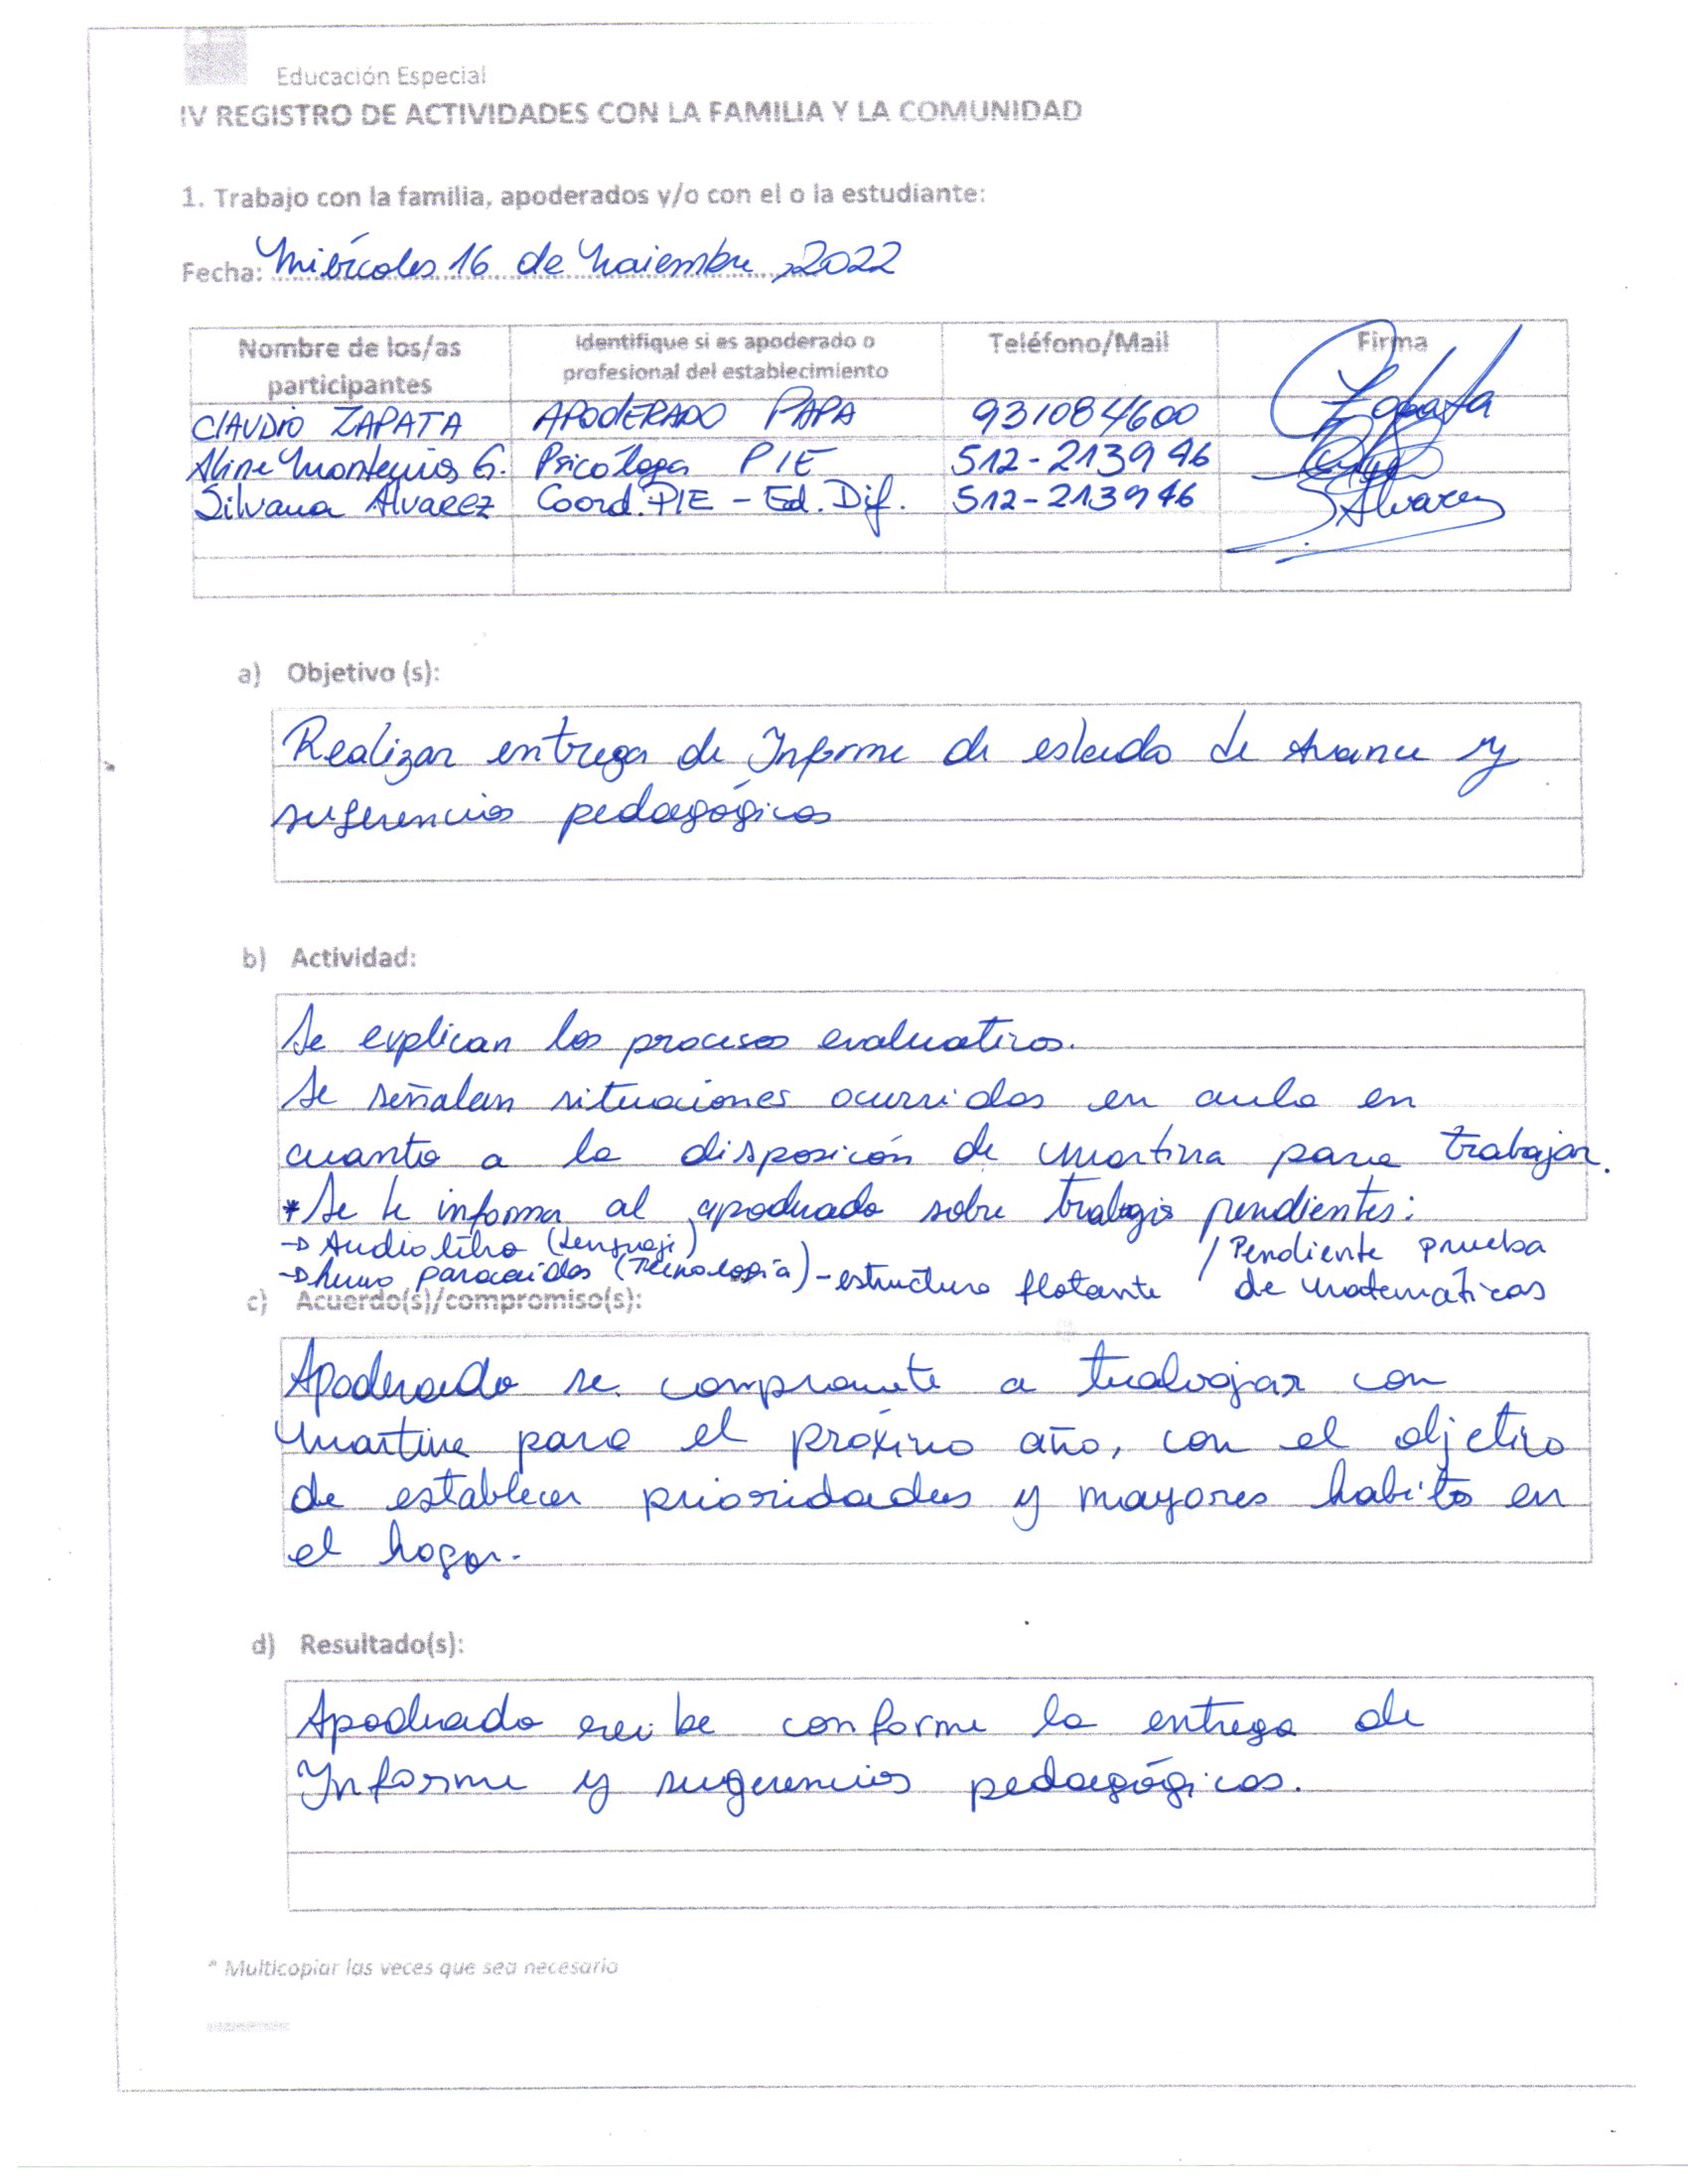 Educación Especial
IV REGISTRO DE ACTIVIDADES CON LA FAMILIA Y LA COMUNIDAD
1. Trabajo con la familia, apoderados y/o con el o la estudiante:
Fecha: Miércoles 16 de Noviembre, 2022
Nombre de los/as participantes Identifique si es apoderado o profesional del establecimiento Teléfono/Mail Firma
CLAUDIO ZAPATA APODERADO PAPA 931084600 Zapata
Aline G. Psicóloga PIE 512-213946
Silvana Alvarez Coord. PIE - Ed. Dif. 512-213946 S. Alvarez
a) Objetivo (s):
Realizar entrega de Informe de estado de Avance y
sugerencias pedagógicas
b) Actividad:
Se explican los procesos evaluativos.
Se señalan situaciones ocurridas en aula en
cuanto a la disposición de Martina para trabajar.
* Se le informa al apoderado sobre trabajos pendientes:
→ Audio libro (Lenguaje)
→ paracaidas (Tecnología) - estructura flotante / Pendiente prueba
de Matemáticas
c) Acuerdo(s)/compromiso(s):
Apoderado se compromete a trabajar con
Martina para el próximo año, con el objetivo
de establecer prioridades y mayores habito en
el hogar.
d) Resultado(s):
Apoderado recibe conforme la entrega de
Informe y sugerencias pedagógicas.
* Multicopiar las veces que sea necesario